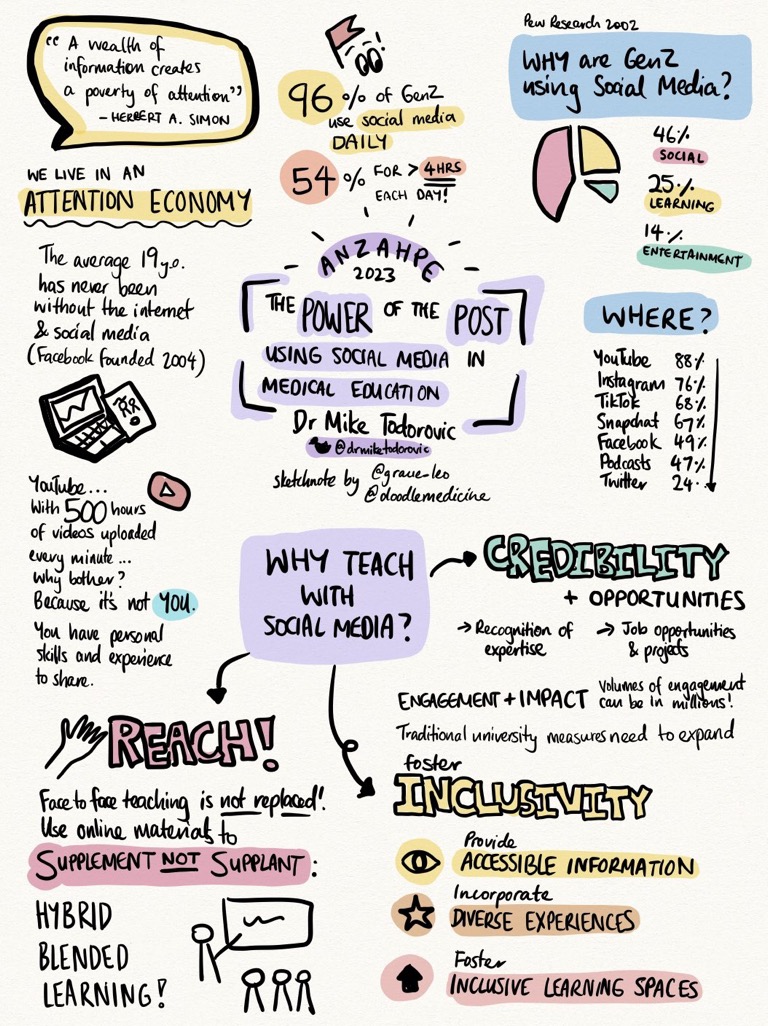 “ A wealth of
information creates
a poverty of attention”
- HERBERT A. SIMON
WE LIVE IN AN
ATTENTION ECONOMY
The average 19y.o.
has never been
without the internet
& social media
(Facebook founded 2004)
YouTube...
With 500 hours
of videos uploaded
every minute...
why bother?
Because it's not YOU.
You have personal
skills and experience
to share.
96% of GenZ
use social media
DAILY
54% FOR > 4HRS
EACH DAY!
Pew Research 2002
WHY are GenZ
using Social Media?
46%
SOCIAL
25%
LEARNING
14%
ENTERTAINMENT
WHERE?
YouTube 88%
Instagram 76%
TikTok 68%
Snapchat 67%
Facebook 49%
Podcasts 47%
Twitter 24%
ANZAHPE
2023
THE POWER OF THE POST
USING SOCIAL MEDIA IN
MEDICAL EDUCATION
Dr Mike Todorovic
@drmiketodorovic
sketchnote by @grace_leo
@doodlemedicine
WHY TEACH
WITH
SOCIAL MEDIA?
CREDIBILITY
+ OPPORTUNITIES
→ Recognition of
expertise
→ Job opportunities
& projects
ENGAGEMENT + IMPACT Volumes of engagement
can be in millions!
Traditional university measures need to expand
REACH!
Face to face teaching is not replaced!
Use online materials to
SUPPLEMENT NOT SUPPLANT:
HYBRID
BLENDED
LEARNING!
foster
INCLUSIVITY
Provide
ACCESSIBLE INFORMATION
Incorporate
DIVERSE EXPERIENCES
Foster
INCLUSIVE LEARNING SPACES